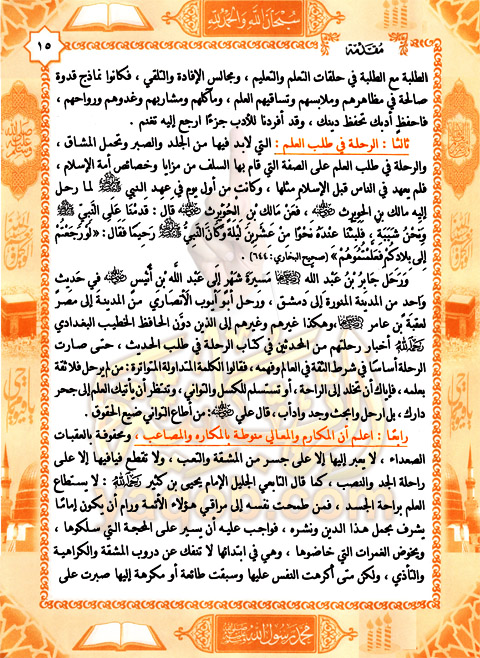 سبحان الله والحمد لله
مقدمة
١٥
الطلبة مع الطلبة في حلقات التعلم والتعليم ، ومجالس الإفادة والتلقي ، فكانوا نماذج قدوة
صالحة في مظاهرهم وملابسهم وتساقيهم العلم ، ومآكلهم ومشاربهم وغدوهم ورواحهم ،
فاحفظ أدبك تحفظ دينك ، وقد أفردنا للأدب جزءًا ارجع إليه تغنم .
ثالثًا : الرحلة في طلب العلم : التي لابد فيها من الجلد والصبر وتحمل المشاق ،
والرحلة في طلب العلم على الصفة التي قام بها السلف من مزايا وخصائص أمة الإسلام ،
فلم يعهد في الناس قبل الإسلام مثلها ، وكانت من أول يوم في عهد النبي ﷺ لما رحل
إليه مالك بن الحويرث رضي الله عنه ، فَعَنْ مَالِكِ بْنِ الْحُوَيْرِثِ رضي الله عنه قال : قَدِمْنَا عَلَى النَّبِيِّ ﷺ
وَنَحْنُ شَبَبَةٌ ، فَلَبِثْنَا عِنْدَهُ نَحْوًا مِنْ عِشْرِينَ لَيْلَةً وَكَانَ النَّبِيُّ ﷺ رَحِيمًا فَقَالَ : «لَوْ رَجَعْتُمْ
إِلَى بِلَادِكُمْ فَعَلَّمْتُمُوهُمْ» (صحيح البخاري: ٦٤٤).
وَرَحَلَ جَابِرُ بْنُ عَبْدِ الله رضي الله عنه مَسِيرَةَ شَهْرٍ إِلَى عَبْدِ اللَّهِ بْنِ أُنَيْسٍ رضي الله عنه فِي حَدِيثٍ
وَاحد من المدينة المنورة إلى دمشق ، ورحل أبو أيوب الأنصاري من المدينة إلى مصر
لعقبة بن عامر رضي الله عنه ، وهكذا غيرهم وغيرهم إلى الذين دوَّن الحافظ الخطيب البغدادي
رحمه الله أخبار رحلتهم من المحدثين في كتاب الرحلة في طلب الحديث ، حتى صارت
الرحلة أساسًا في شرط الثقة في العالم وفهمه ، فقالوا الكلمة المتداولة المتواترة : من لم يرحل فلا ثقة
بعلمه ، فإياك أن تخلد إلى الراحة ، أو تستسلم للكسل والتواني ، وتنتظر أن يأتيك العلم إلى جحر
دارك ، بل ارحل وابحث وجد وادأب ، قال علي رضي الله عنه : من أطاع التواني ضيع الحقوق .
رابعًا : اعلم أن المكارم والمعالي منوطة بالمكاره والمصاعب ، ومحفوفة بالعقبات
الصعداء ، لا يعبر إليها إلا على جسر من المشقة والتعب ، ولا تقطع فيافيها إلا على
راحلة الجد والنصب ، كما قال التابعي الجليل الإمام يحيى بن كثير رحمه الله : لا يستطاع
العلم براحة الجسد ، فمن طمحت نفسه إلى مراقي هؤلاء الأئمة ورام أن يكون إمامًا
يشرف بحمل هذا الدين ونشره ، فواجب عليه أن يسير على المحجة التي سلكوها ،
ويخوض الغمرات التي خاضوها ، وهي في ابتدائها لا تنفك عن دروب المشقة والكراهية
والتأذي ، ولكن متى أكرهت النفس عليها وسيقت طائعة أو مكرهة إليها صبرت على
محمد رسول الله